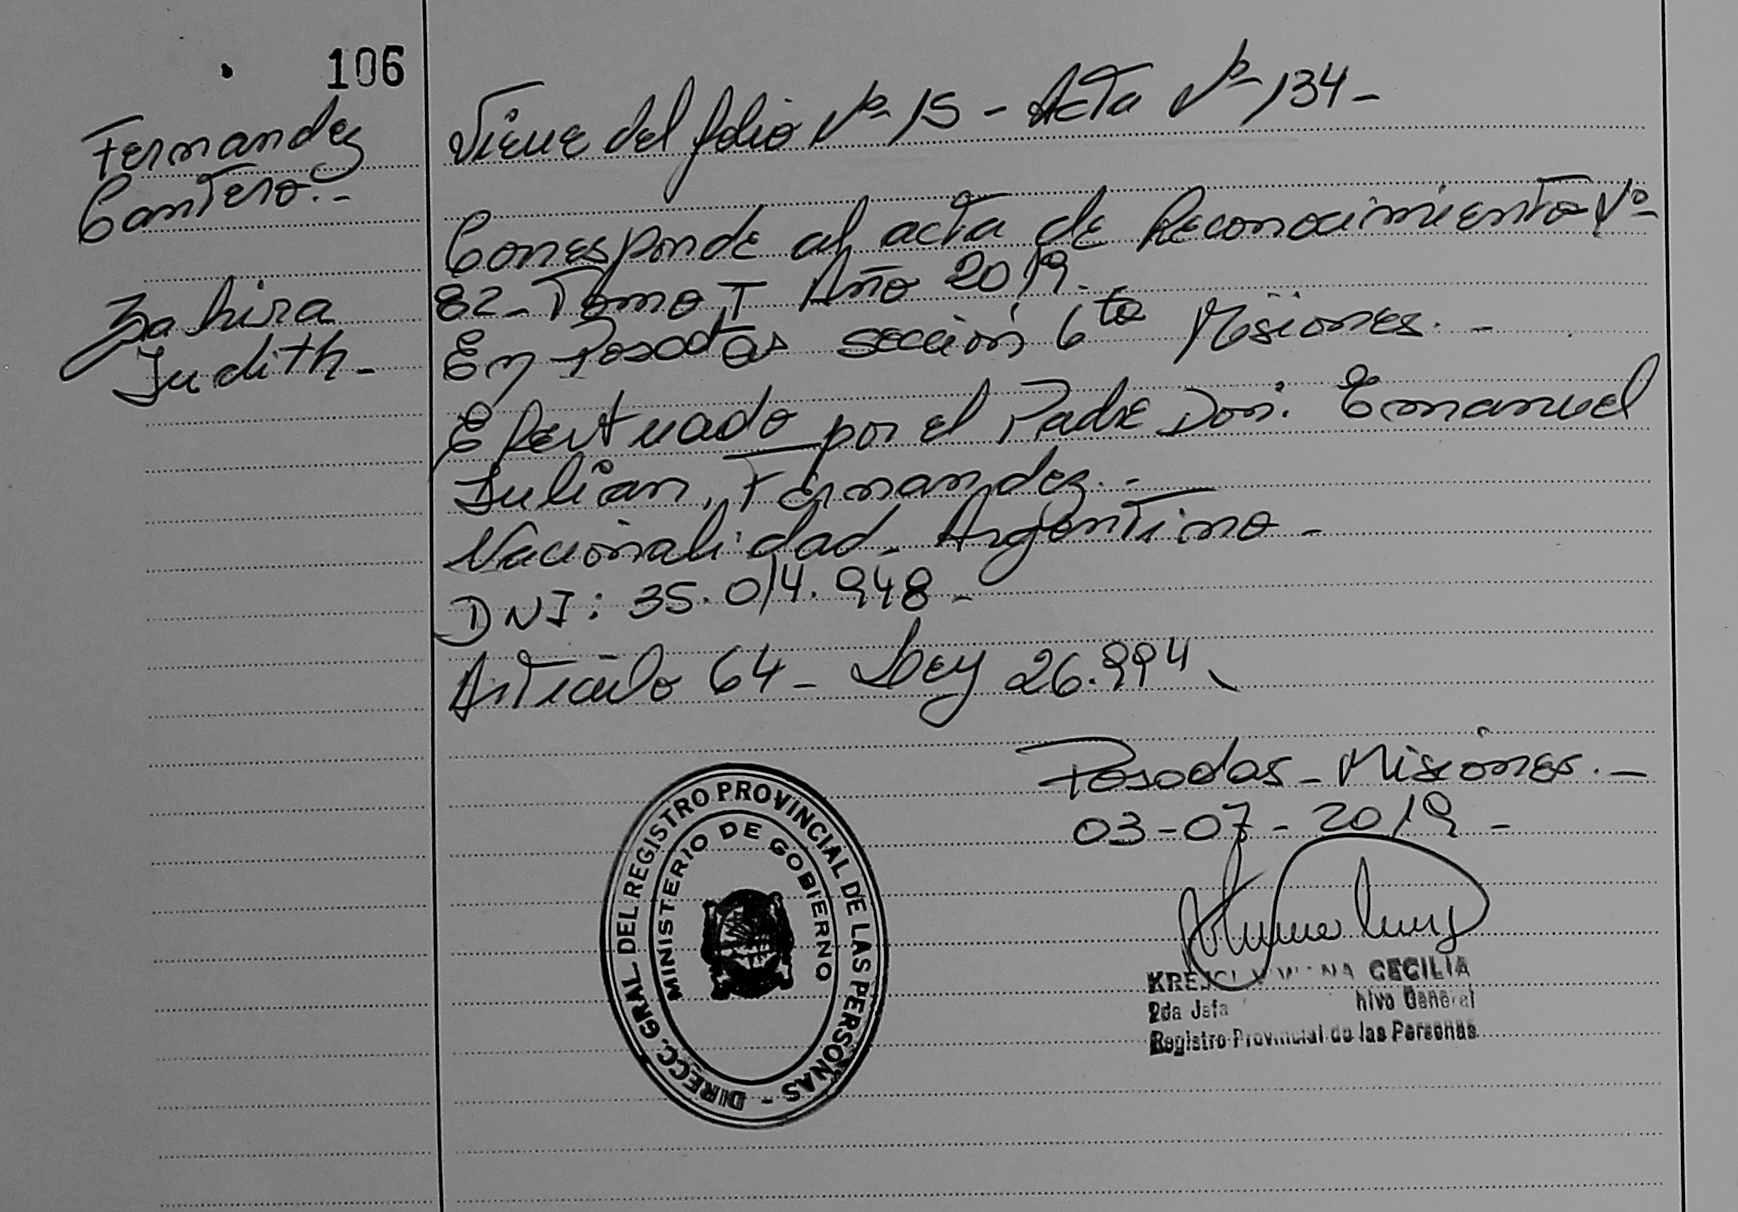 106
Fernandez
Cantero.-
Zahira
Judith-
Viene del folio Nº 15 - Acta Nº 134-
Corresponde al acta de Reconocimiento Nº
82- Tomo I Año 2019.
En Posadas sección 6ta Misiones. -
Efectuado por el Padre Don: Emanuel
Julian, Fernandez.-
Nacionalidad- Argentino-
DNI: 35.014.948-
Articulo 64- Ley 26.994-
Posadas-Misiones.-
03-07-2019-
DIRECC. GRAL. DEL REGISTRO PROVINCIAL DE LAS PERSONAS -
MINISTERIO DE GOBIERNO
CECILIA
2da Jefa General
Registro Provincial de las Personas